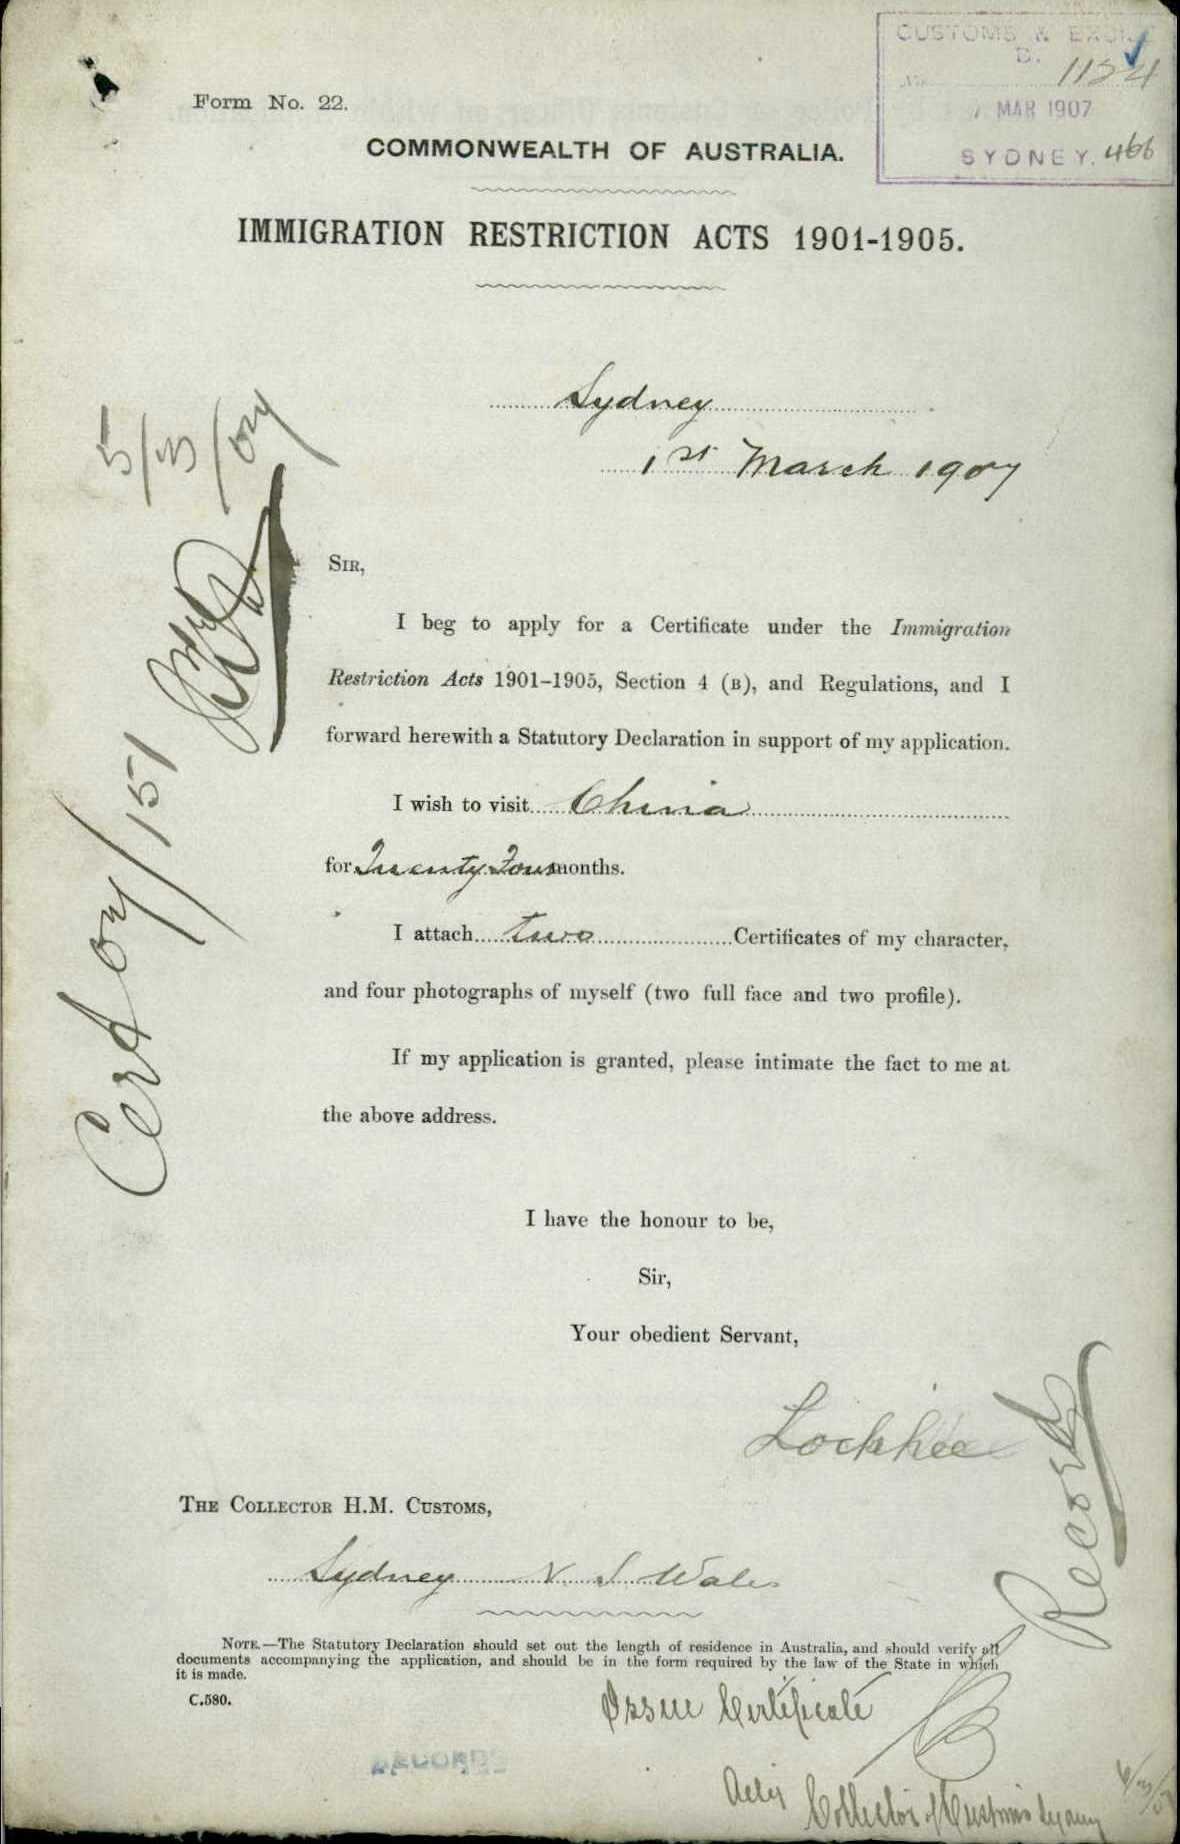 CUSTOMS & EXCISE
1124
MAR 1907
SYDNEY. 466
Form No. 22.
COMMONWEALTH OF AUSTRALIA.
IMMIGRATION RESTRICTION ACTS 1901-1905.
Sydney
1st March 1907
5/3/07
SIR,
I beg to apply for a Certificate under the Immigration
Restriction Acts 1901–1905, Section 4 (B), and Regulations, and I
forward herewith a Statutory Declaration in support of my application.
I wish to visit China
for Twenty Four months.
I attach two Certificates of my character,
and four photographs of myself (two full face and two profile).
If my application is granted, please intimate the fact to me at
the above address.
Cert 07/151
I have the honour to be,
Sir,
Your obedient Servant,
Lockhee
Record
THE COLLECTOR H.M. CUSTOMS,
Sydney N. S Wales
NOTE.—The Statutory Declaration should set out the length of residence in Australia, and should verify all
documents accompanying the application, and should be in the form required by the law of the State in which
it is made.
C.580.
Issue Certificate
RECORDS
Actg Collector of Customs Sydney